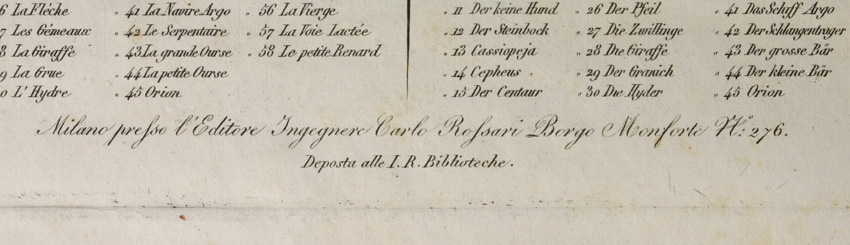 6 La Flèche " 41 La Navire Argo " 56 La Vierge
7 Les Gémeaux " 42 Le Serpentaire " 57 La Voie Lactée
8 La Giraffe " 43 La grande Ourse " 58 Le petite Renard
9 La Grue " 44 La petite Ourse
0 L'Hydre " 45 Orion
" 11 Der keine Hund " 26 Der Pfeil " 41 Das Schiff Argo
" 12 Der Steinbock " 27 Die Zwillinge " 42 Der Schlangentrager
" 13 Cassiopeja " 28 Die Giraffe " 43 Der grosse Bär
" 14 Cepheus " 29 Der Granich " 44 Der kleine Bär
" 15 Der Centaur " 30 Die Hyder " 45 Orion
Milano presso l'Editore Ingegnere Carlo Rossari Borgo Monforte N.: 276.
Deposta alle I. R. Biblioteche.